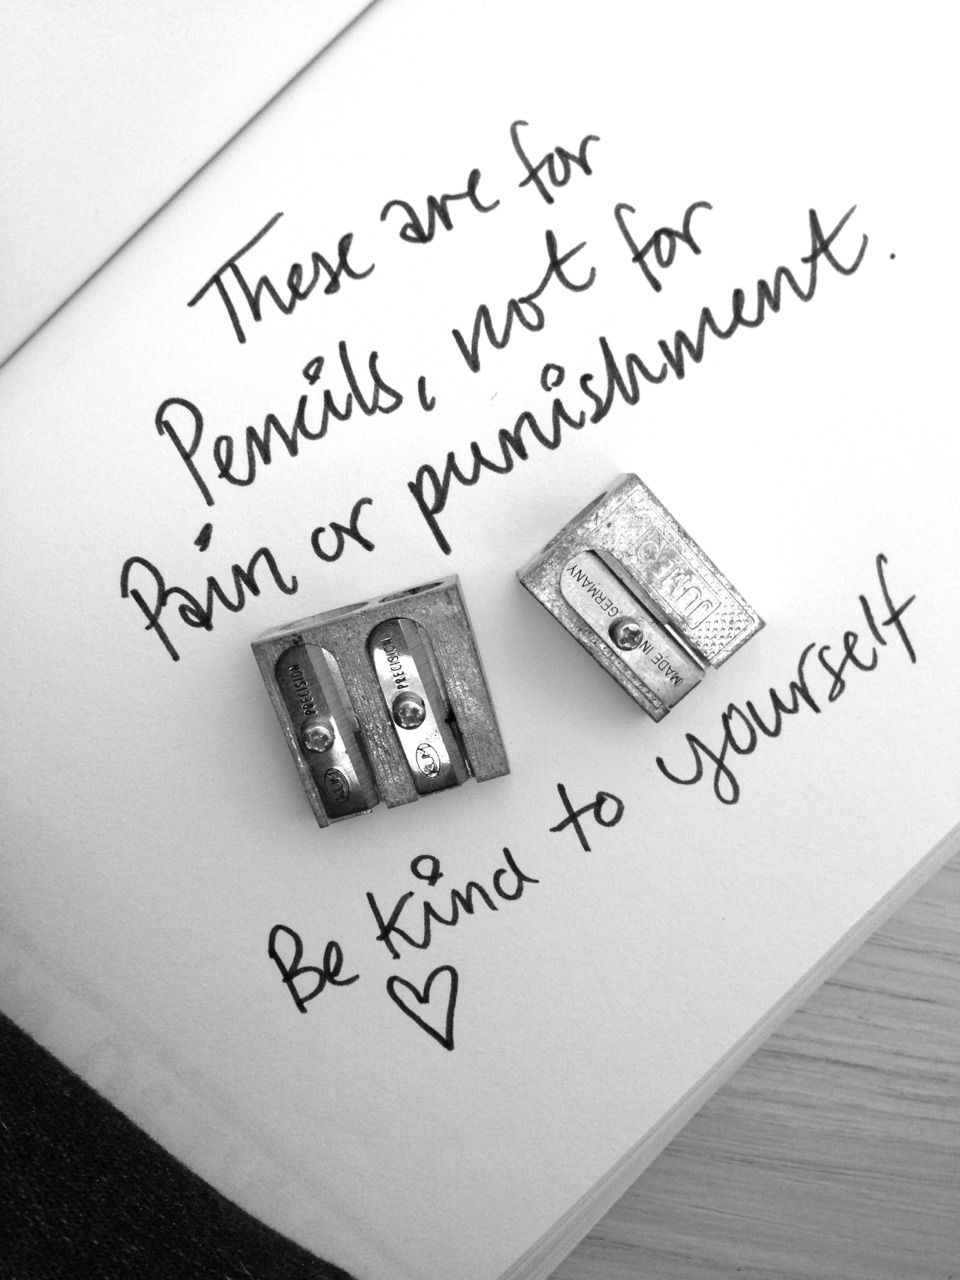 These are for
Pencils, not for
Pain or punishment.
PRECISION
KUM
PRECISION
KUM
MADE IN GERMANY
Be kind to yourself